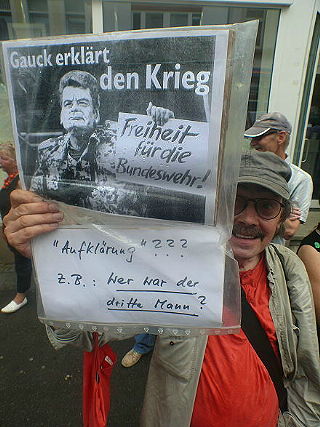 Gauck erklärt
den Krieg
Freiheit
für die
Bundeswehr!
"Aufklärung"???
z.B.: Wer war der
dritte Mann?